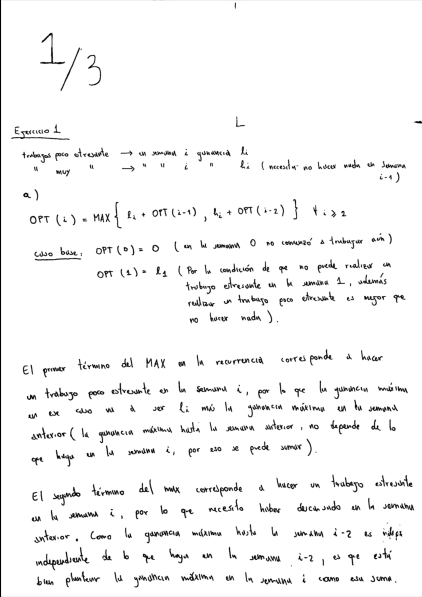 1/3
L
Ejercicio 1
trabajos poco estresante → en semana i ganancia li
" muy " → " " i " hi (necesita no hacer nada en semana i-1)
a)
OPT(i) = MAX { li + OPT(i-1) , hi + OPT(i-2) } ∀ i ≥ 2
caso base: OPT(0) = 0 (en la semana 0 no comenzó a trabajar aún)
OPT(1) = l1 (Por la condición de que no puede realizar un
trabajo estresante en la semana 1, además
realizar un trabajo poco estresante es mejor que
no hacer nada).
El primer término del MAX en la recurrencia corresponde a hacer
un trabajo poco estresante en la semana i, por lo que la ganancia máxima
en ese caso va a ser li más la ganancia máxima en la semana
anterior (la ganancia máxima hasta la semana anterior, no depende de lo
que haga en la semana i, por eso se puede sumar).
El segundo término del max corresponde a hacer un trabajo estresante
en la semana i, por lo que necesito haber descansado en la semana
anterior. Como la ganancia máxima hasta la semana i-2 es
independiente de lo que haga en la semana i-2, es que está
bien plantear la ganancia máxima en la semana i como esa suma.